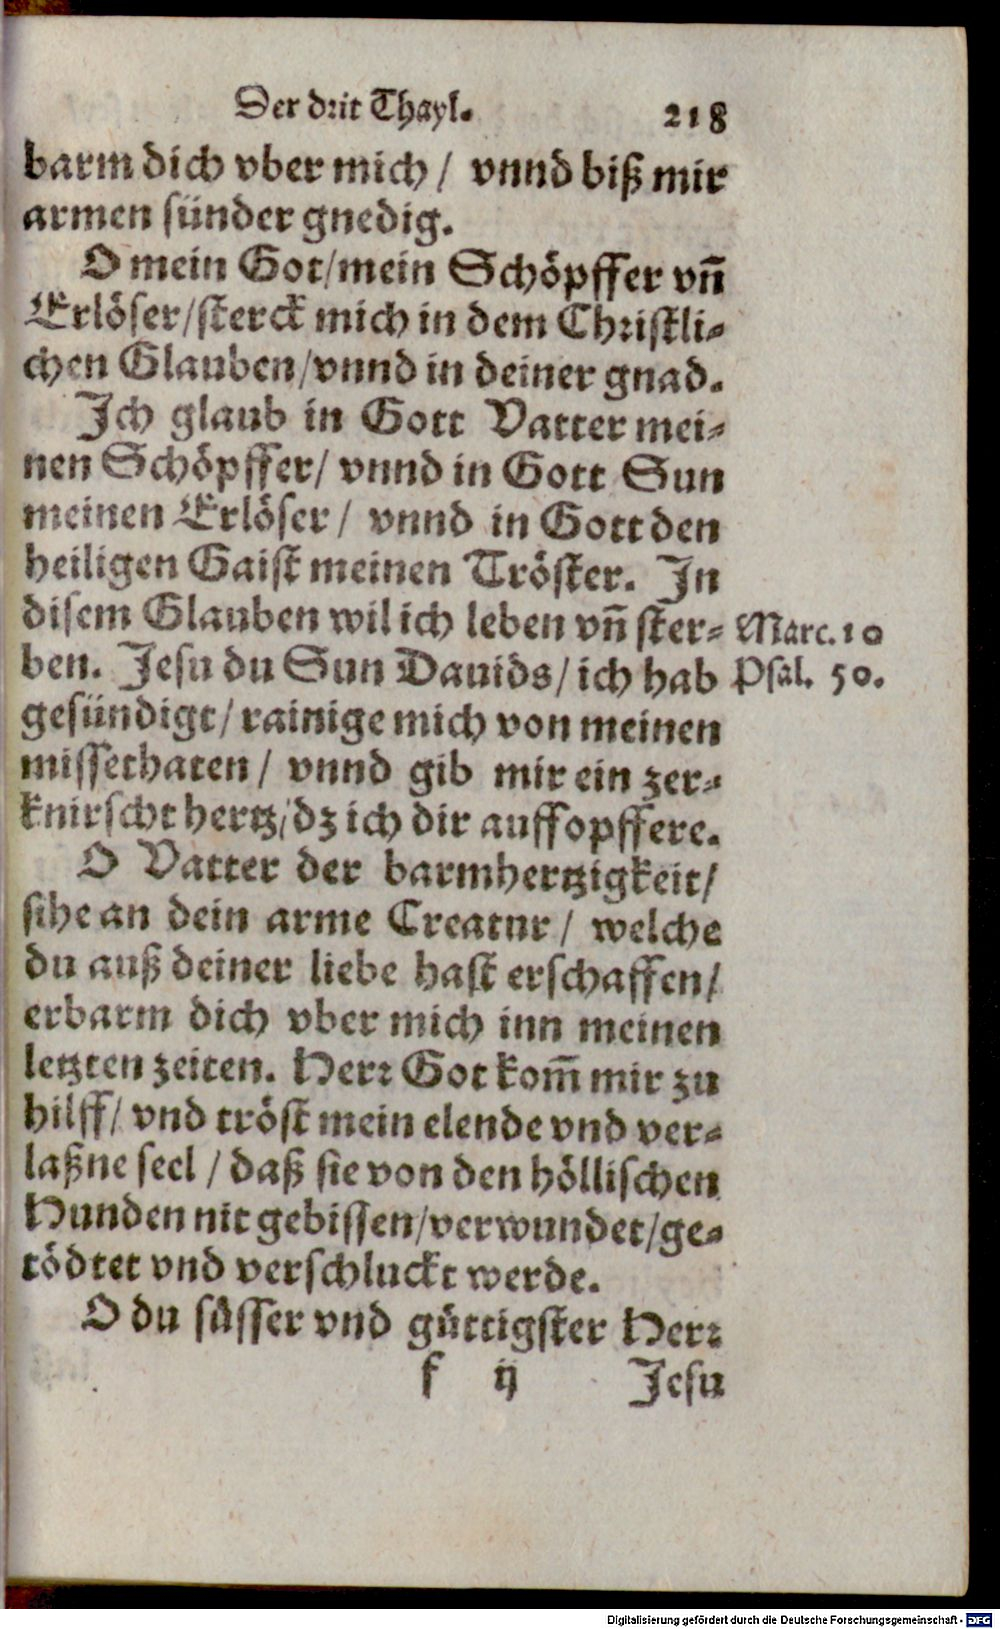 Der drit Thayl. 218
barm dich vber mich / vnnd biß mir
armen sünder gnedig.
O mein Got/mein Schöpffer vñ
Erlöser/sterck mich in dem Christli-
chen Glauben/vnnd in deiner gnad.
Ich glaub in Gott Vatter mei-
nen Schöpffer/ vnnd in Gott Sun
meinen Erlöser / vnnd in Gott den
heiligen Gaist meinen Tröster. In
disem Glauben wil ich leben vñ ster- Marc. 10
ben. Jesu du Sun Dauids / ich hab Psal. 50.
gesündigt/ rainige mich von meinen
missethaten / vnnd gib mir ein zer-
knirscht hertz/dz ich dir auffopffere.
O Vatter der barmhertzigkeit/
sihe an dein arme Creatur / welche
du auß deiner liebe hast erschaffen/
erbarm dich vber mich inn meinen
letzten zeiten. Herr Got kom̃ mir zu
hilff/ vnd tröst mein elende vnd ver-
laßne seel / daß sie von den höllischen
Hunden nit gebissen/verwundet/ge-
tödtet vnd verschluckt werde.
O du süsser vnd güttigster Herr
f ij Jesu
Digitalisierung gefördert durch die Deutsche Forschungsgemeinschaft - DFG